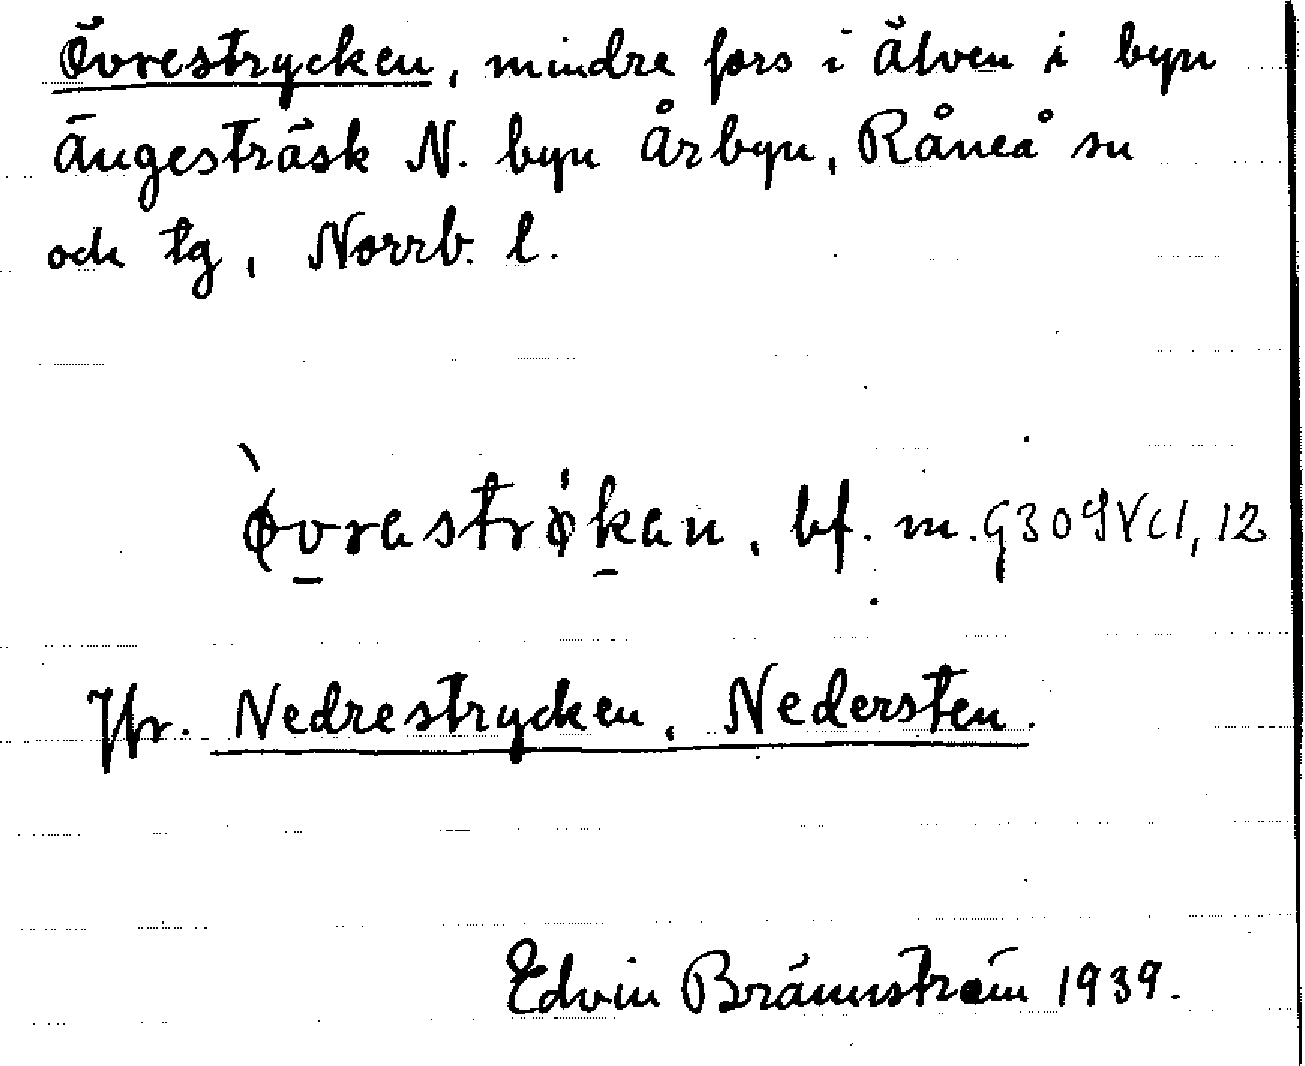 Övrestrycken, mindre fors i älven i byn
Ängesträsk N. byn Årbyn, Råneå sn
och tg, Norrb. l.
øvrastrøkan, bf. m.
Jfr. Nedrestrycken, Nedersten.
Edvin Brännström 1939.